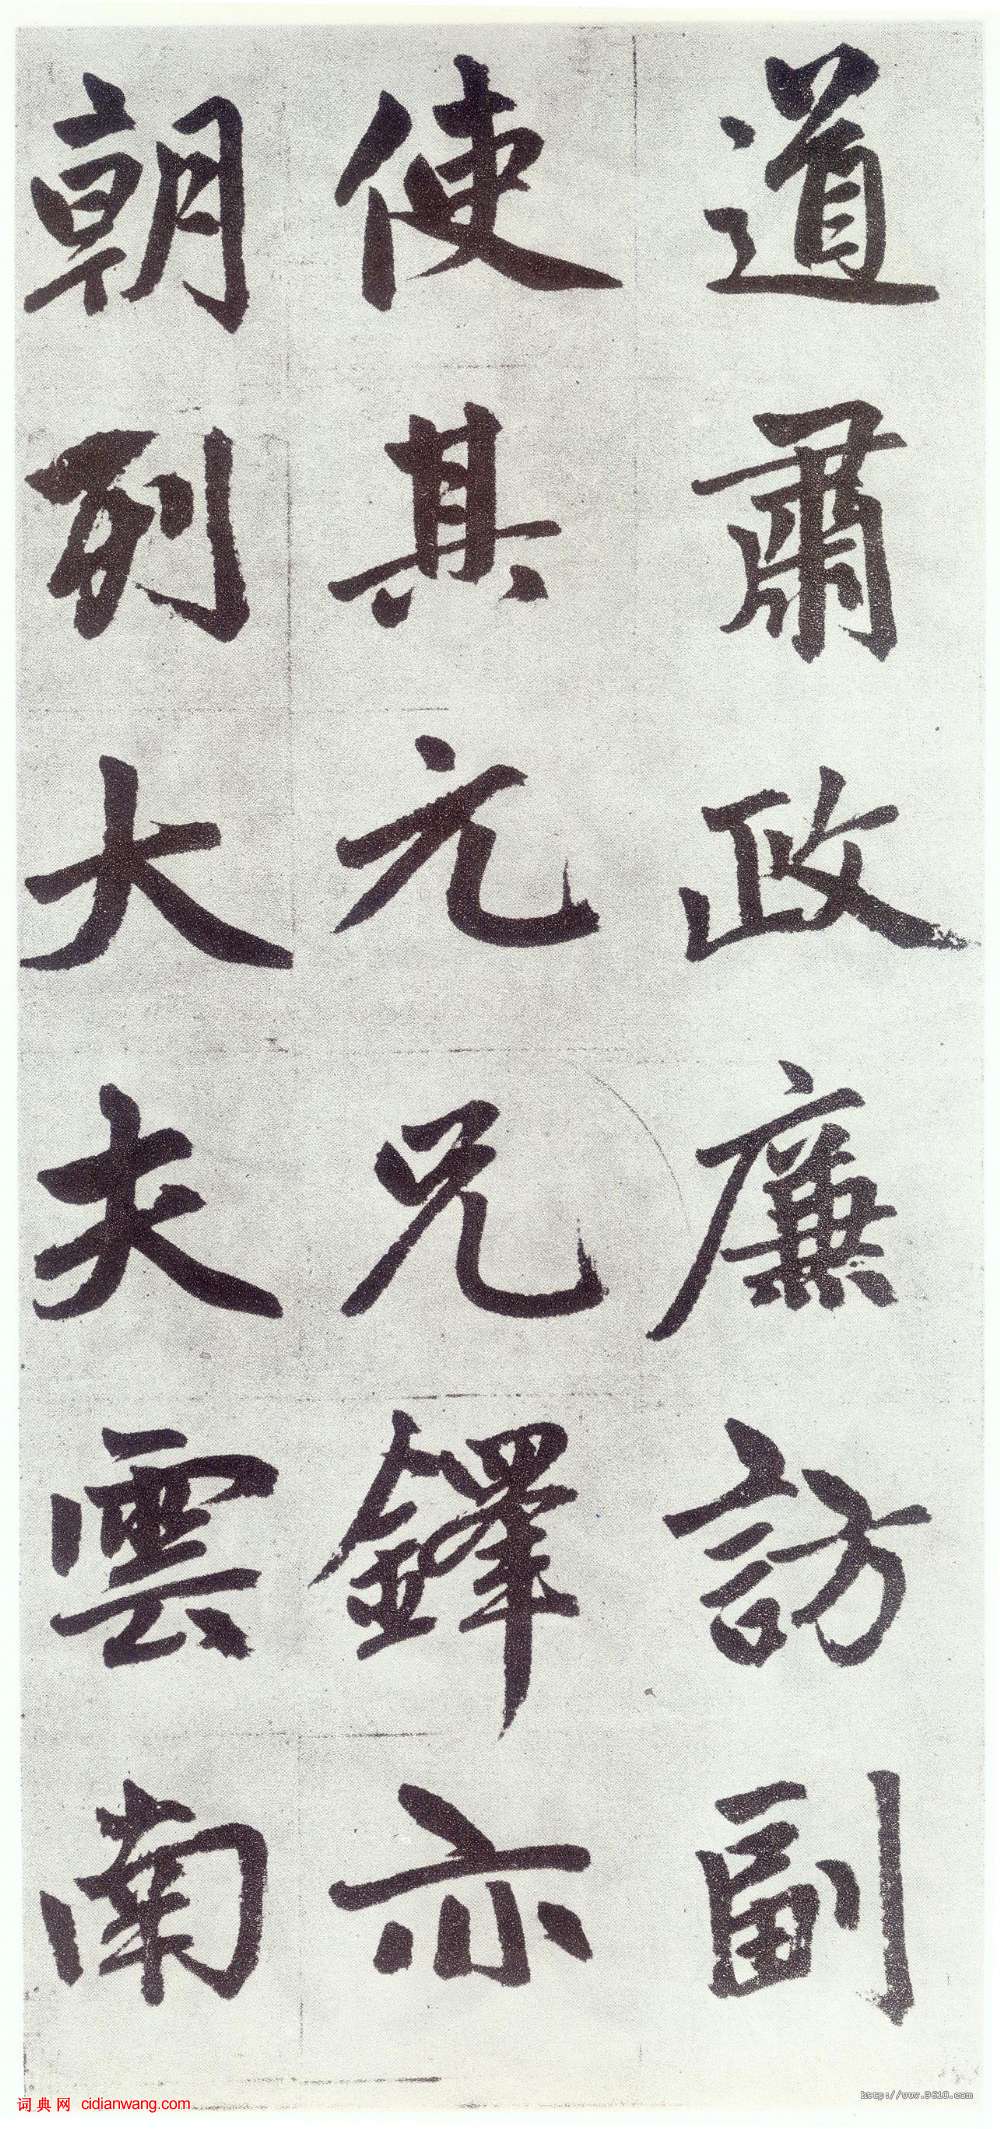 道肅政廉訪副
使其元兄鐸亦
朝列大夫雲南
词典网 cidianwang.com
http://www.9610.com